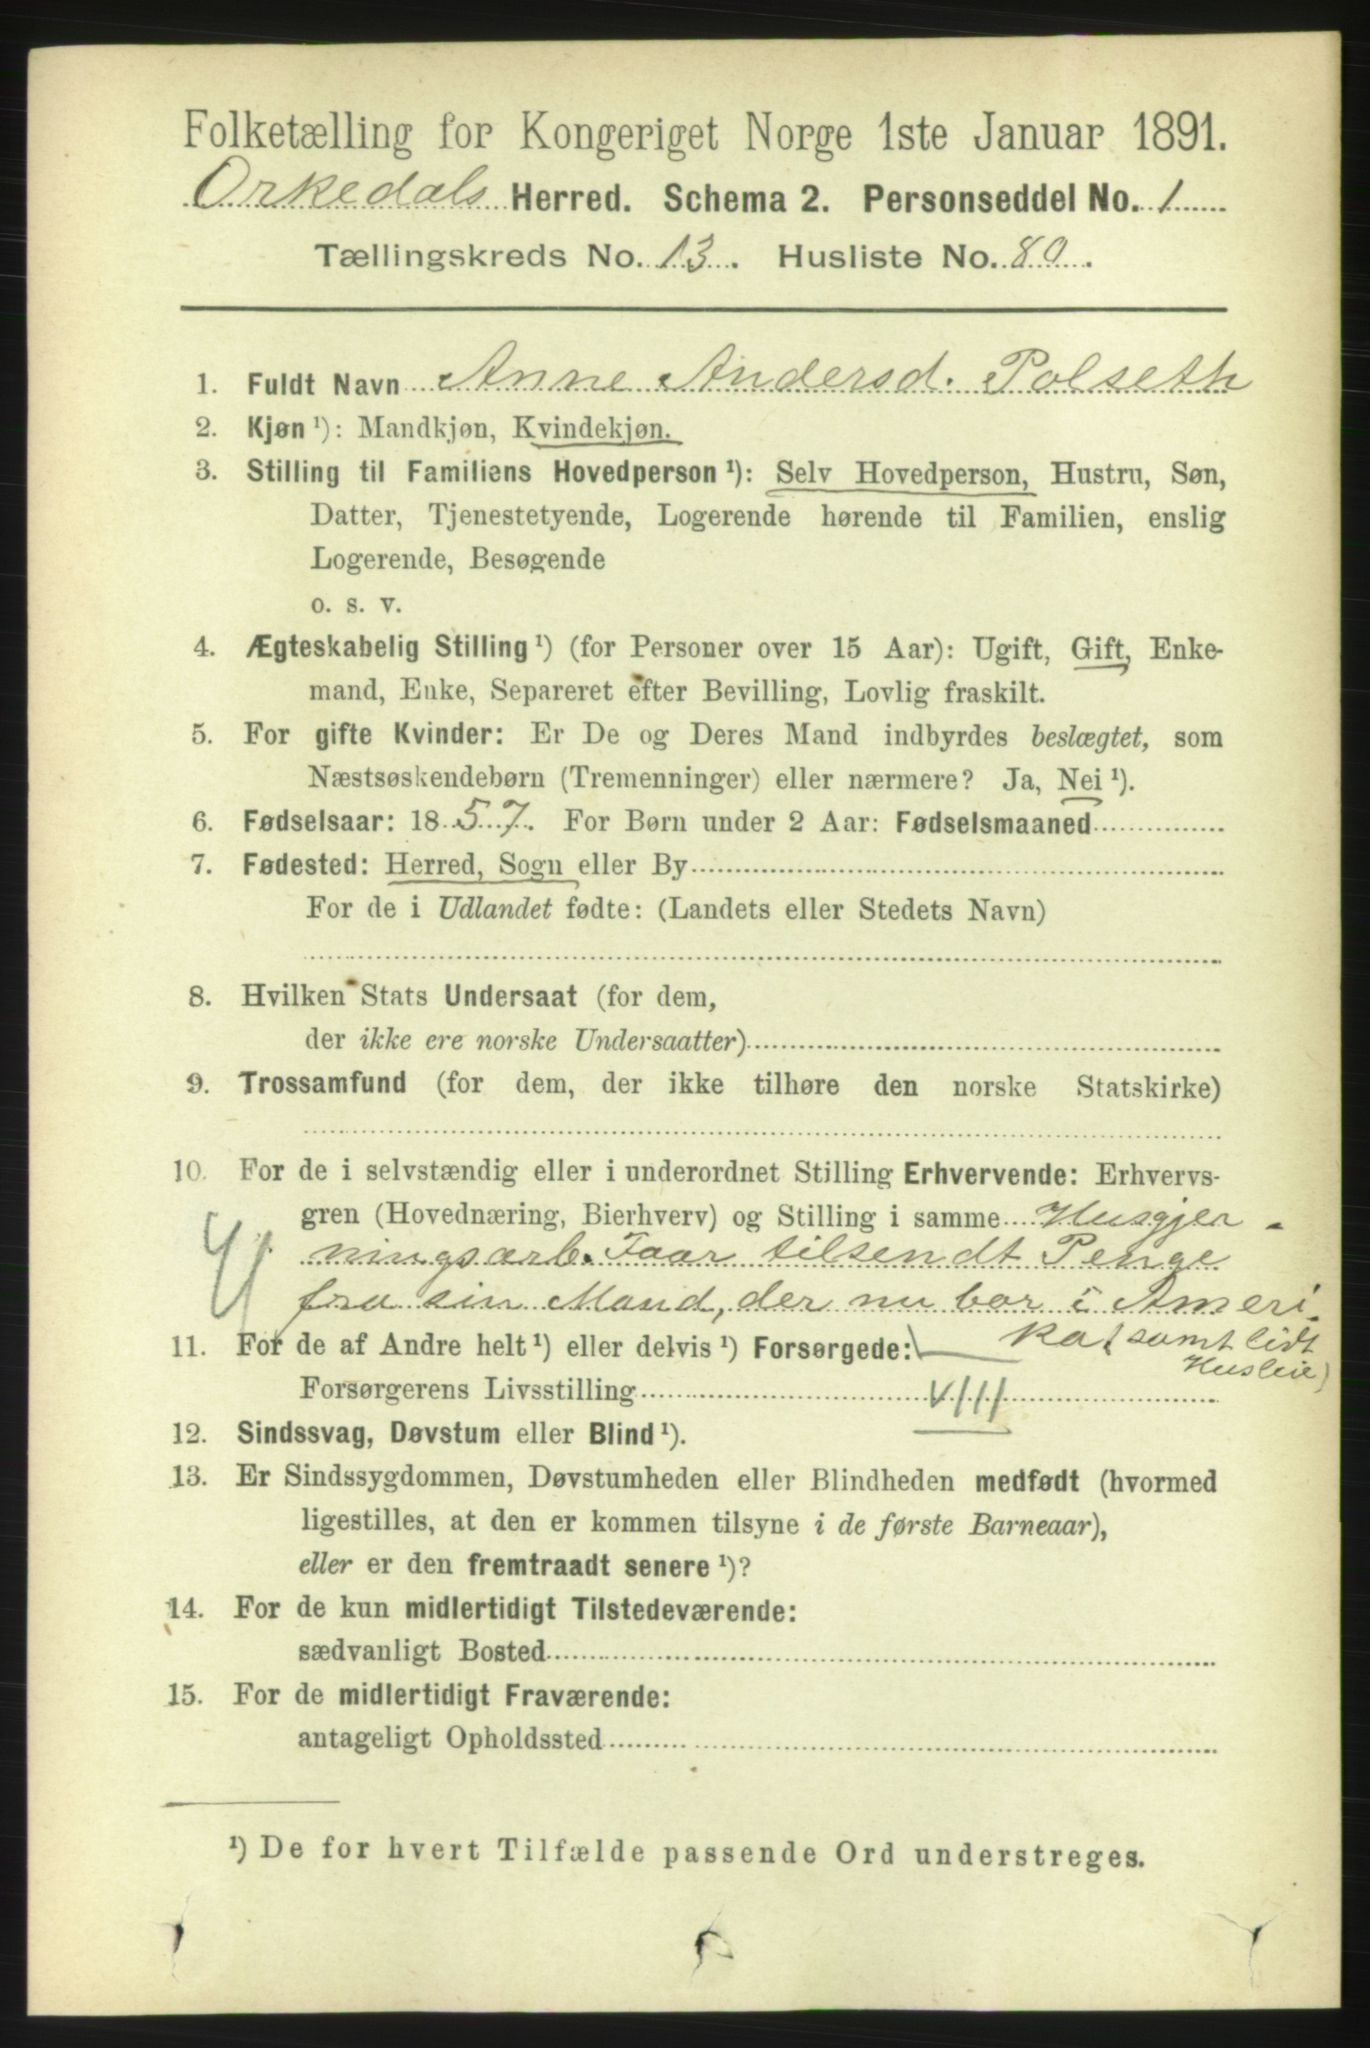 Folketælling for Kongeriget Norge 1ste Januar 1891.
Orkedals Herred. Schema 2. Personseddel No. 1
Tællingskreds No. 13. Husliste No. 80.
1. Fuldt Navn Anne Andersd. Polseth
2. Kjøn ¹): Mandkjøn, Kvindekjøn.
3. Stilling til Familiens Hovedperson ¹): Selv Hovedperson, Hustru, Søn,
Datter, Tjenestetyende, Logerende hørende til Familien, enslig
Logerende, Besøgende
o. s. v.
4. Ægteskabelig Stilling ¹) (for Personer over 15 Aar): Ugift, Gift, Enke-
mand, Enke, Separeret efter Bevilling, Lovlig fraskilt.
5. For gifte Kvinder: Er De og Deres Mand indbyrdes beslægtet, som
Næstsøskendebørn (Tremenninger) eller nærmere? Ja, Nei ¹).
6. Fødselsaar: 1857. For Børn under 2 Aar: Fødselsmaaned
7. Fødested: Herred, Sogn eller By
For de i Udlandet fødte: (Landets eller Stedets Navn)
8. Hvilken Stats Undersaat (for dem,
der ikke ere norske Undersaatter)
9. Trossamfund (for dem, der ikke tilhøre den norske Statskirke)
10. For de i selvstændig eller i underordnet Stilling Erhvervende: Erhvervs-
gren (Hovednæring, Bierhverv) og Stilling i samme Husgjer-
ningsarb. Faar tilsendt Penge
fra sin Mand, der nu bor i Ameri-
11. For de af Andre helt ¹) eller delvis ¹) Forsørgede: ka (samt lidt
Husleie)
Forsørgerens Livsstilling VIII
12. Sindssvag, Døvstum eller Blind ¹).
13. Er Sindssygdommen, Døvstumheden eller Blindheden medfødt (hvormed
ligestilles, at den er kommen tilsyne i de første Barneaar),
eller er den fremtraadt senere ¹)?
14. For de kun midlertidigt Tilstedeværende:
sædvanligt Bosted
15. For de midlertidigt Fraværende:
antageligt Opholdssted
¹) De for hvert Tilfælde passende Ord understreges.